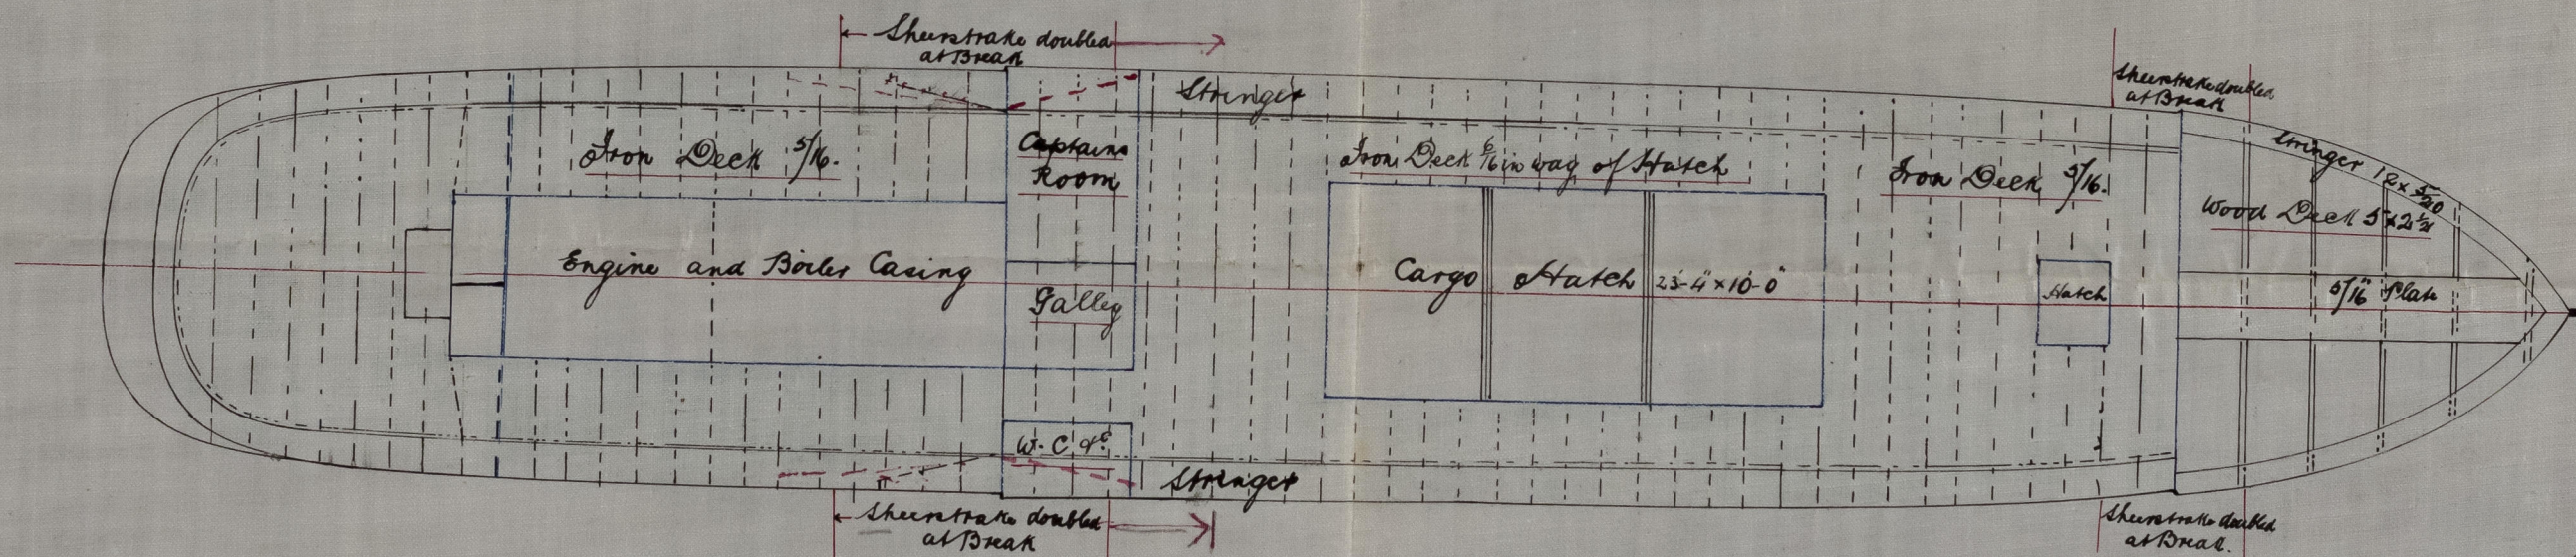 Sheerstrake doubled
at Break
Sheerstrake doubled
at Break
Stringer
Stringer 12 x 5/20
Iron Deck 5/16.
Captains
Room
Iron Deck 6/16 in way of Hatch
Iron Deck 5/16.
Wood Deck 5 x 2 1/2
Engine and Boiler Casing
Galley
Cargo Hatch 23'-4" x 10'-0"
Hatch
5/16" Plate
W. C &c.
Stringer
Sheerstrake doubled
at Break
Sheerstrake doubled
at Break.